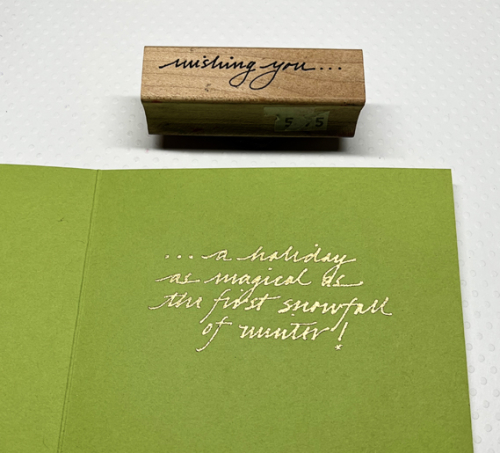 wishing you...
... a holiday
as magical as
the first snowfall
of winter!